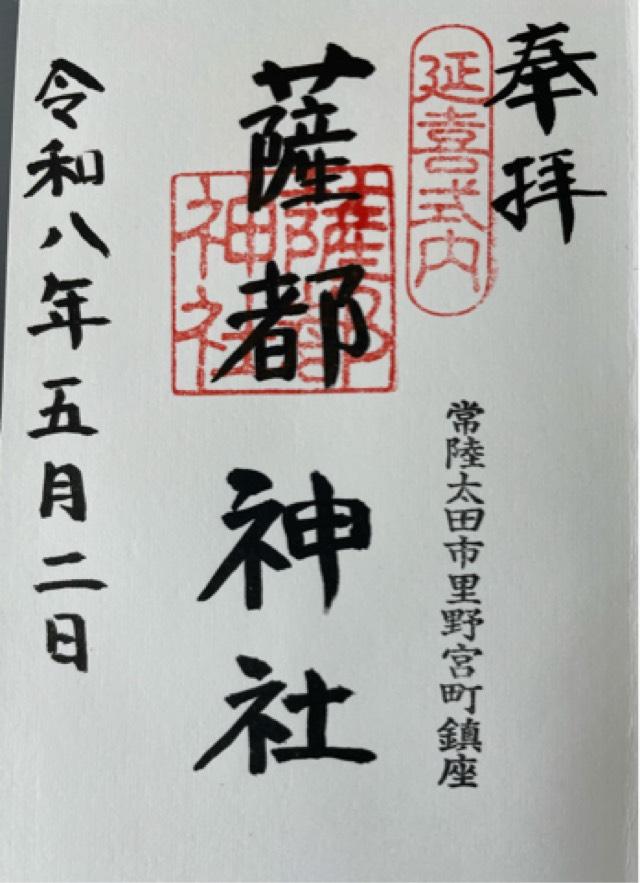 奉拝
延喜式内
常陸太田市里野宮町鎮座
薩都神社
薩都
神社
令和八年五月二日